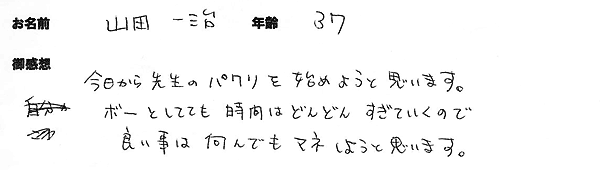 お名前 山田 一治 年齢 37
御感想
今日から先生のパクリを始めようと思います。
自分か ボーとしてても時間はどんどんすぎていくので
良い事は何んでもマネしようと思います。